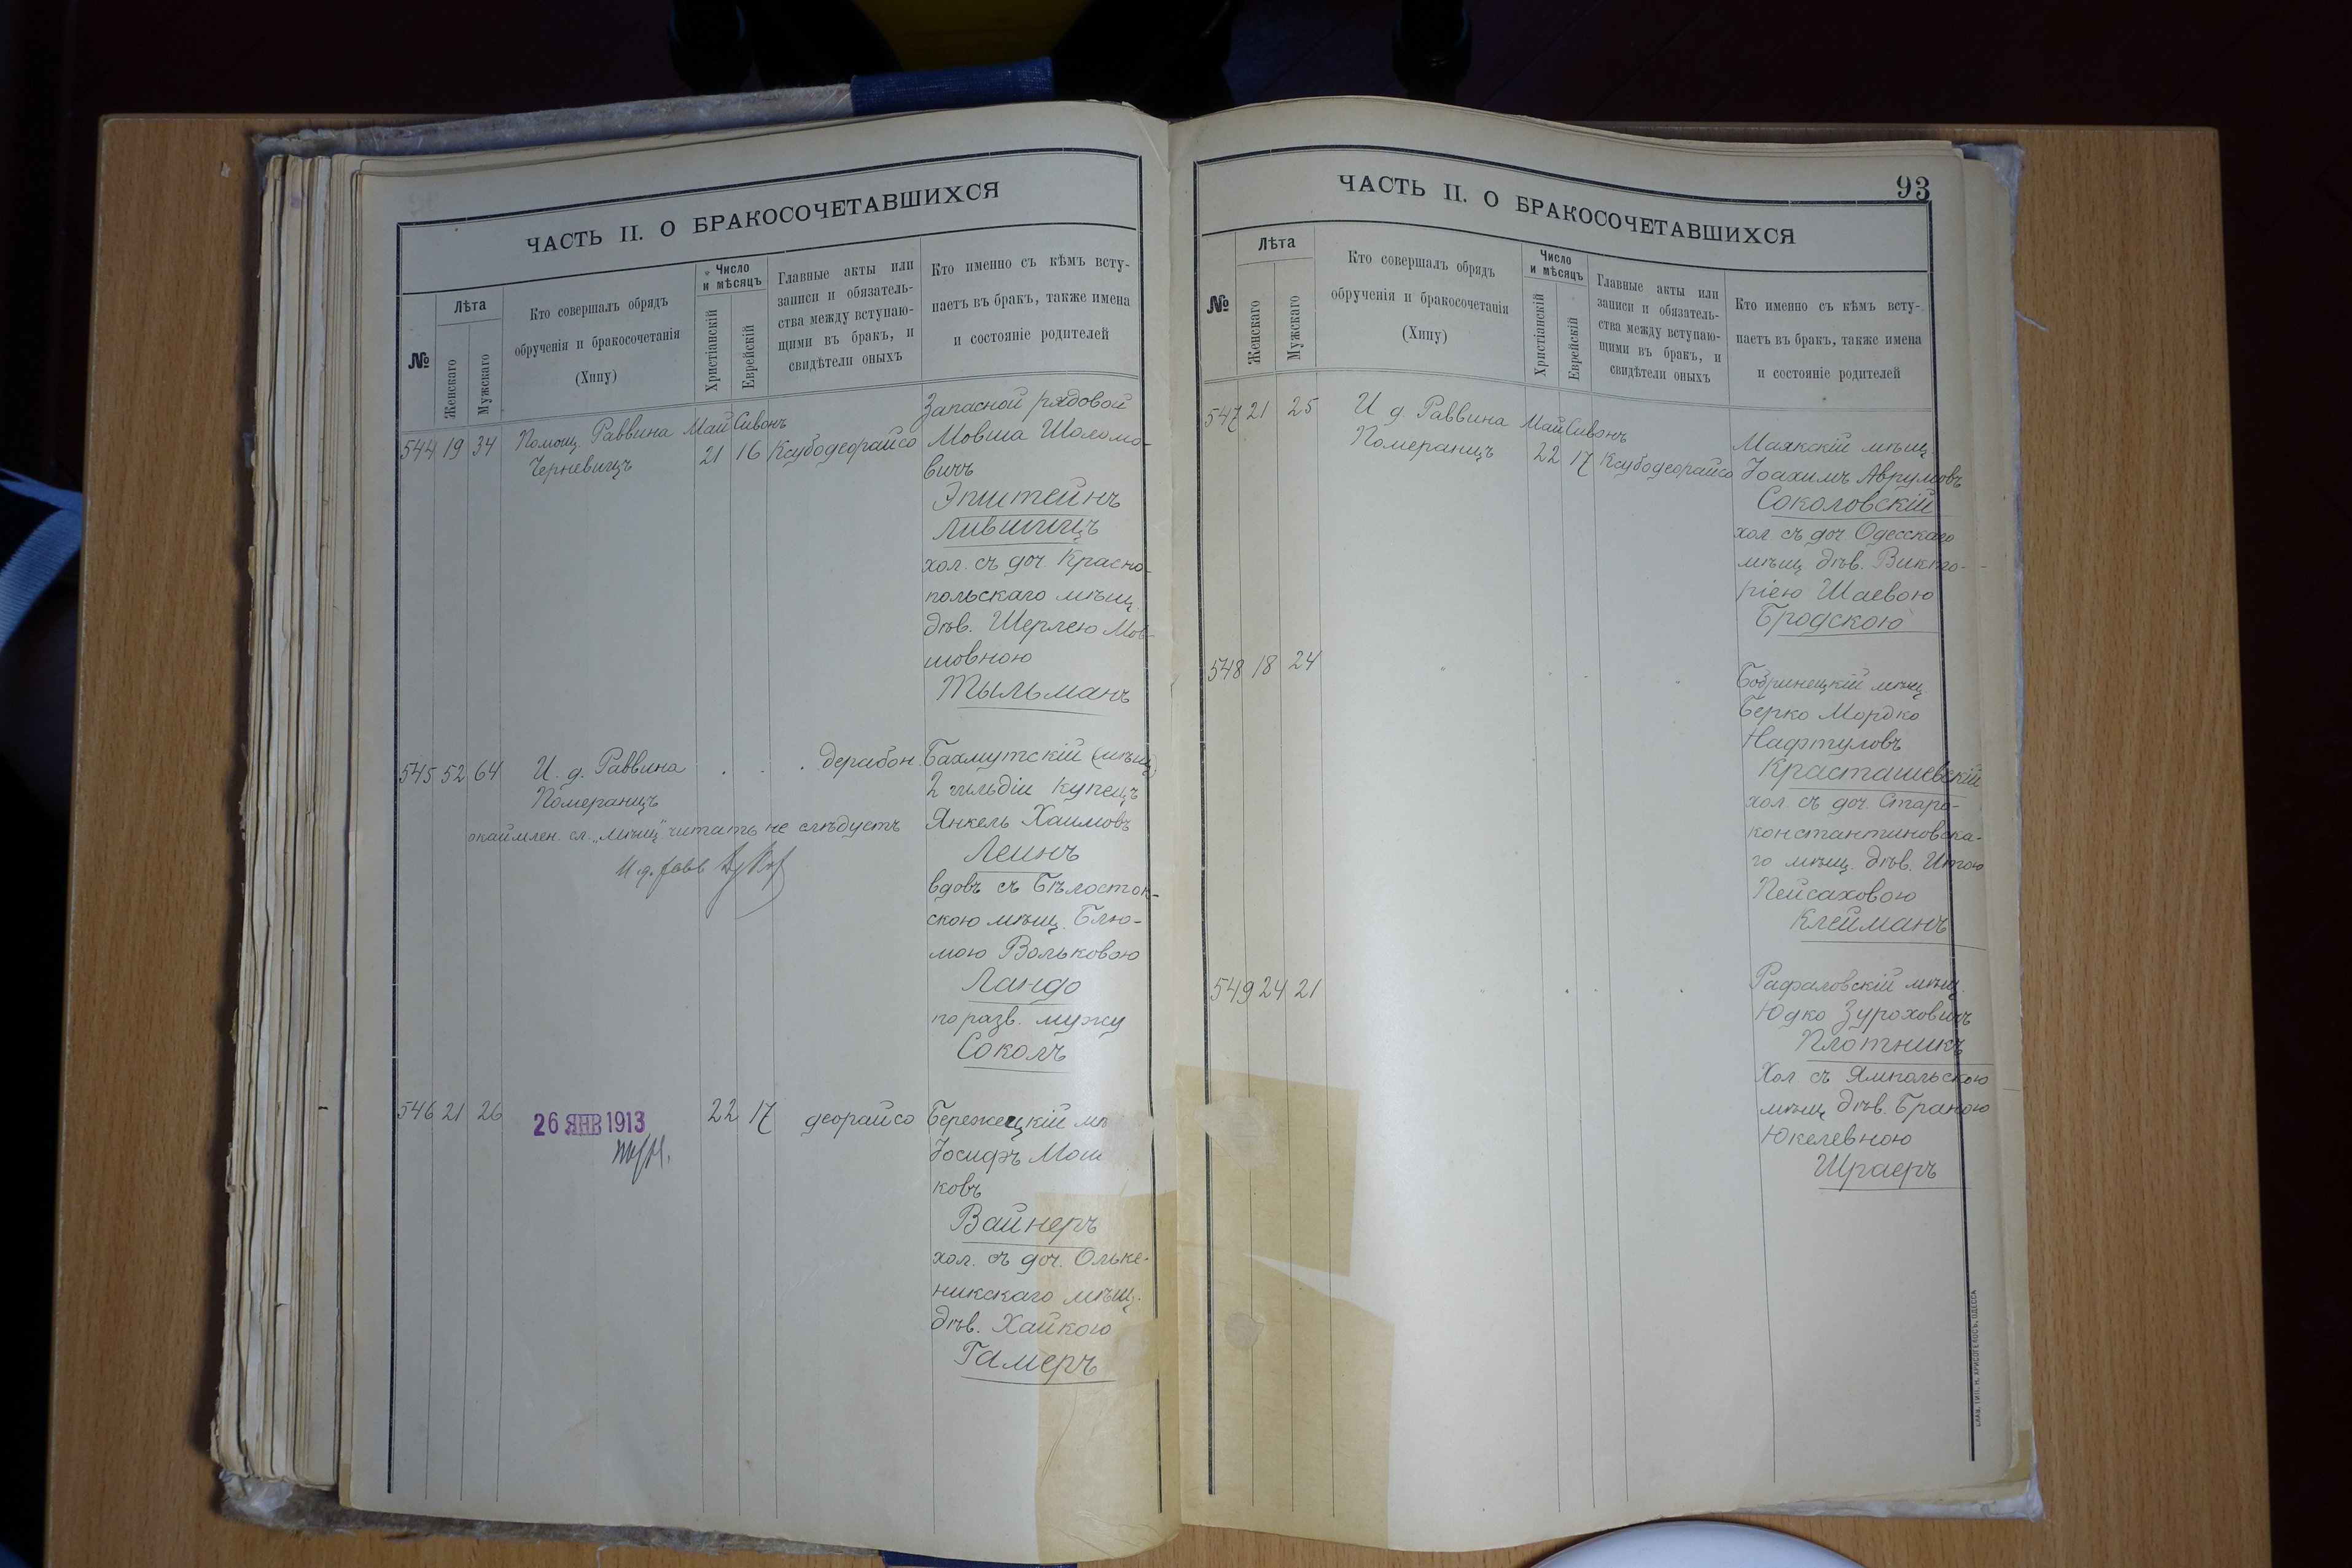 ЧАСТЬ II. О БРАКОСОЧЕТАВШИХСЯ
№
Лѣта
Женскаго
Мужскаго
Кто совершалъ обрядъ
обрученія и бракосочетанія
(Хипу)
Число
и мѣсяцъ
Христіанскій
Еврейскій
Главные акты или
записи и обязатель-
ства между вступаю-
щими въ бракъ, и
свидѣтели оныхъ
Кто именно съ кѣмъ всту-
паетъ въ бракъ, также имена
и состояніе родителей
544 19 34 Помощ. Раввина Май Сивонъ
Черневицъ 21 16 Ксубодеорайсо
Запасной рядовой
Мовша Шоломо-
вичъ
Эпштейнъ
Лившицъ
хол. съ доч. Красно-
польскаго мѣщ.
дѣв. Шерлею Мов-
шовною
Тыльманъ
545 52 64 И. д. Раввина . . . дерабон.
Померанцъ
окаймлен. сл. „мѣщ" читать не слѣдуетъ
И. д. Равв
Бахмутскій (мѣщ)
2 гильдіи купецъ
Янкель Хаимовъ
Леинъ
вдовъ съ Бѣлосток-
скою мѣщ. Блю-
мою Вольковою
Ландо
по разв. мужу
Соколъ
546 21 26 22 17 деорайсо
26 ЯНВ 1913
Бережецкій мѣ
Іосифъ Мош
ковъ
Вайнеръ
хол. съ доч. Ольке-
никскаго мѣщ.
дѣв. Хайкою
Гамеръ
93
ЧАСТЬ II. О БРАКОСОЧЕТАВШИХСЯ
№
Лѣта
Женскаго
Мужскаго
Кто совершалъ обрядъ
обрученія и бракосочетанія
(Хипу)
Число
и мѣсяцъ
Христіанскій
Еврейскій
Главные акты или
записи и обязатель-
ства между вступаю-
щими въ бракъ, и
свидѣтели оныхъ
Кто именно съ кѣмъ всту-
паетъ въ бракъ, также имена
и состояніе родителей
547 21 25 И д. Раввина Май Сивонъ
Померанцъ 22 17 Ксубодеорайсо
Маякскій мѣщ.
Іоахимъ Аврумовъ
Соколовскій
хол съ доч Одесскаго
мѣщ дѣв. Викто-
ріею Шаевою
Бродскою
548 18 24
Бобринецкій мѣщ.
Берко Мордко
Нафтуловъ
Красташевскій
хол съ доч. Старо-
константиновска-
го мѣщ. дѣв. Итою
Пейсаховою
Клейманъ
549 24 21
Рафаловскій мѣщ.
Юдко Зуроховичъ
Плотникъ
Хол съ Ямпольскою
мѣщ дѣв. Браною
Юкелевною
Шраеръ
СЛАВ. ТИП. Н. ХРИСОГЕЛОСЪ, ОДЕССА